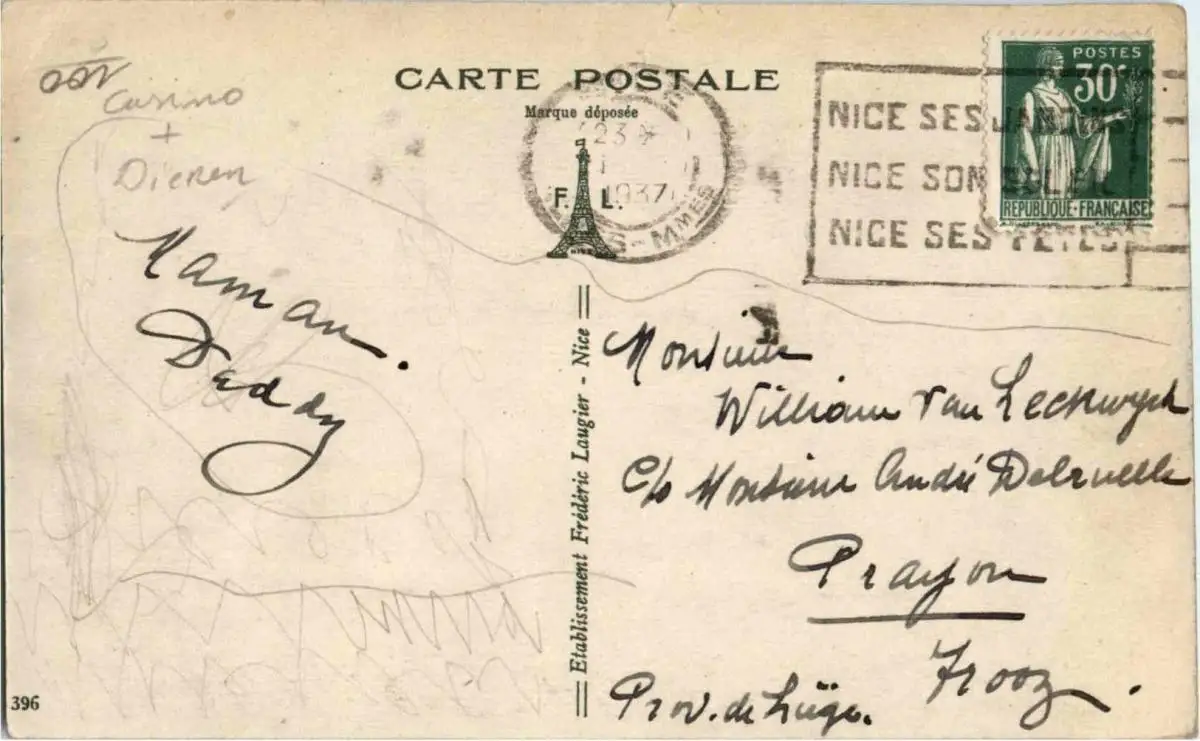 CARTE POSTALE
Marque déposée
F. L.
Casino
+
Dieren
Maman.
Daddy
23
1937
NICE SES JARDINS
NICE SON SOLEIL
NICE SES FÊTES
POSTES
30c
REPUBLIQUE·FRANÇAISE
Etablissement Frédéric Laugier - Nice
Monsieur
William van Leckwyck
c/o Monsieur André Delruelle
Prayon
Trooz.
Prov. de Liège.
396